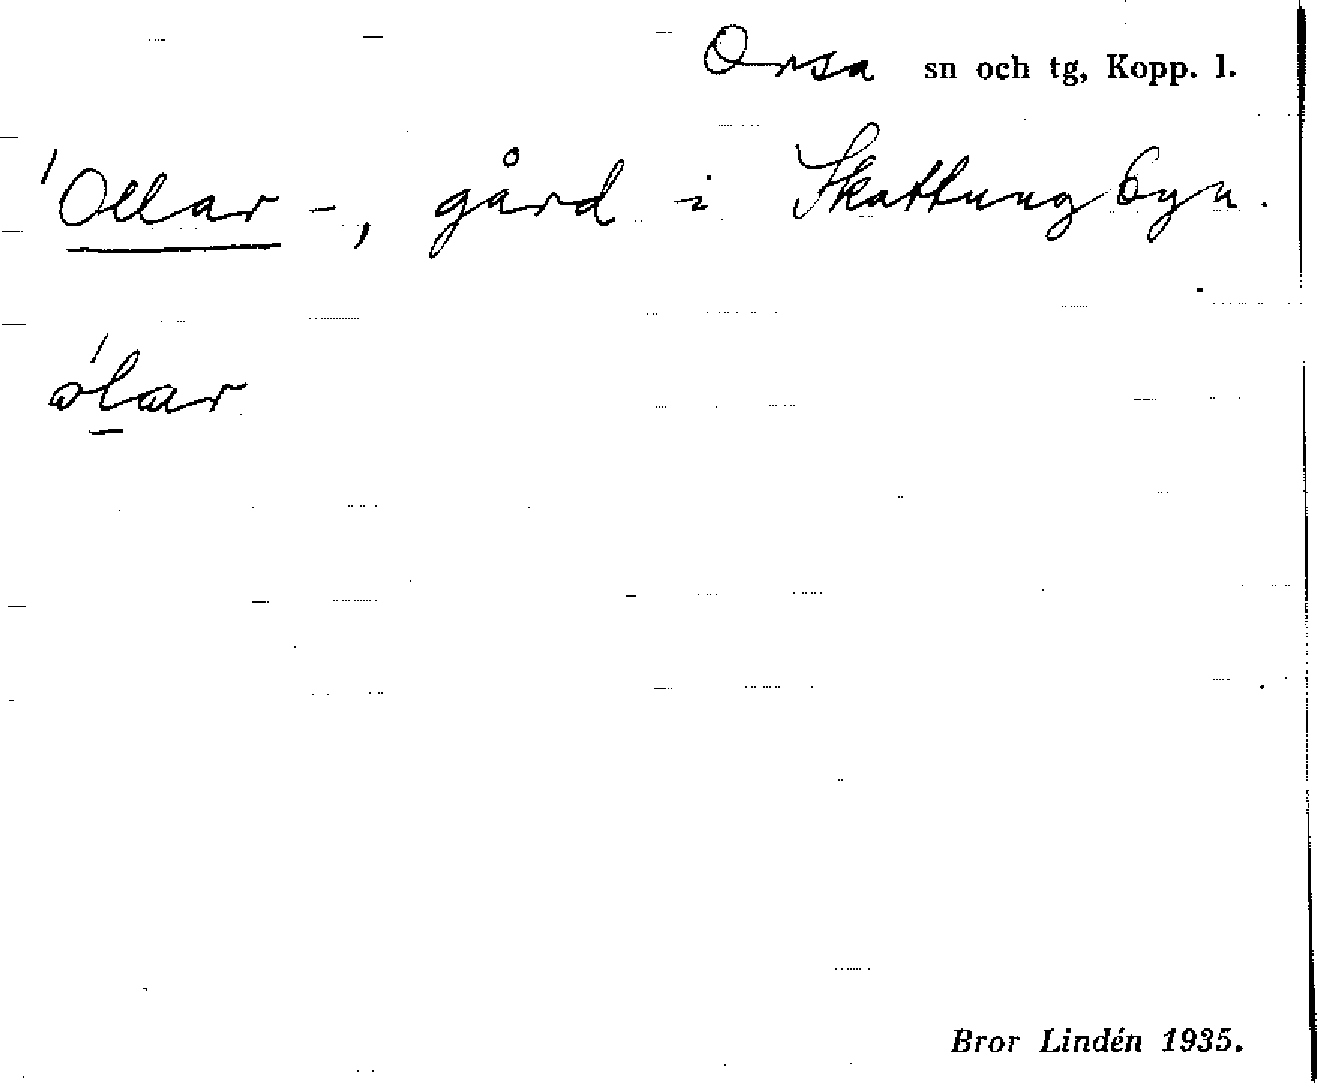 Orsa sn och tg, Kopp. l.
'Ollar-, gård i Skattungbyn.
ólar
Bror Lindén 1935.